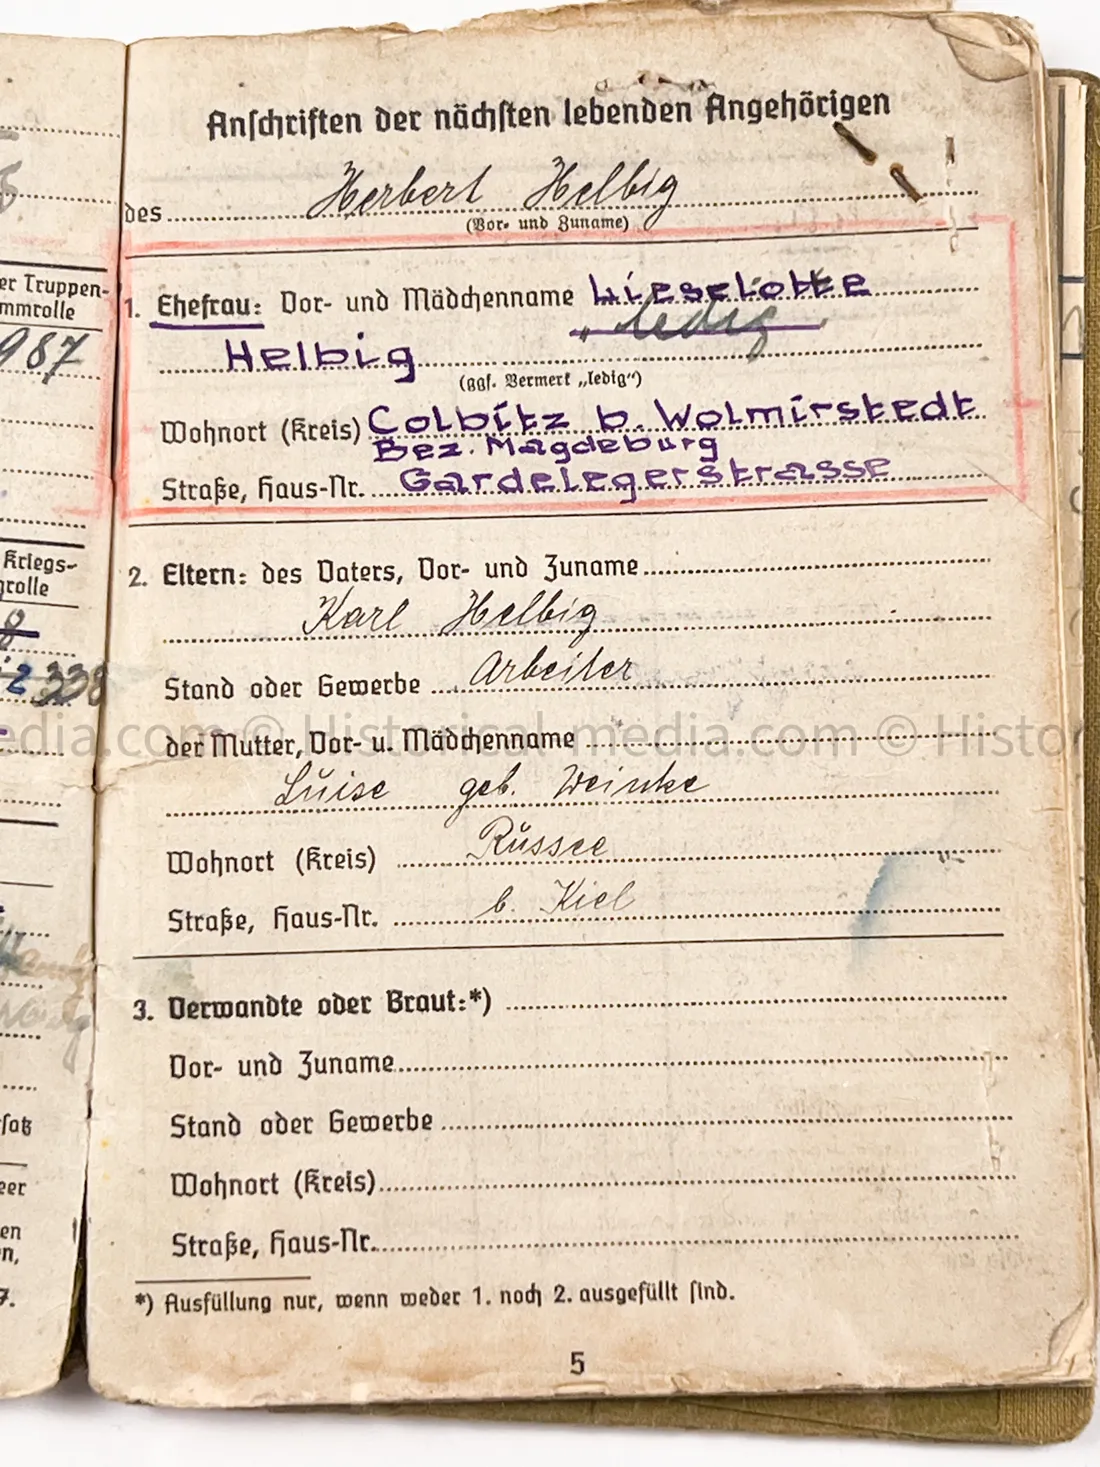 Anschriften der nächsten lebenden Angehörigen
des Herbert Helbig
(Vor- und Zuname)
1. Ehefrau: Vor- und Mädchenname Lieselotte
„ledig
Helbig
(ggf. Vermerk „ledig“)
Wohnort (Kreis) Colbitz b. Wolmirstedt
Bez. Magdeburg
Straße, Haus-Nr. Gardelegerstrasse
2. Eltern: des Vaters, Vor- und Zuname
Karl Helbig
Stand oder Gewerbe Arbeiter
der Mutter, Vor- u. Mädchenname
Luise geb. Weinke
Wohnort (Kreis) Russee
Straße, Haus-Nr. b. Kiel
3. Verwandte oder Braut:*)
Vor- und Zuname
Stand oder Gewerbe
Wohnort (Kreis)
Straße, Haus-Nr.
*) Ausfüllung nur, wenn weder 1. noch 2. ausgefüllt sind.
5
er Truppen-
mmrolle
987
Kriegs-
rolle
338
satz
eer
en
n,
7.
edia.com © Historical-media.com © Histor